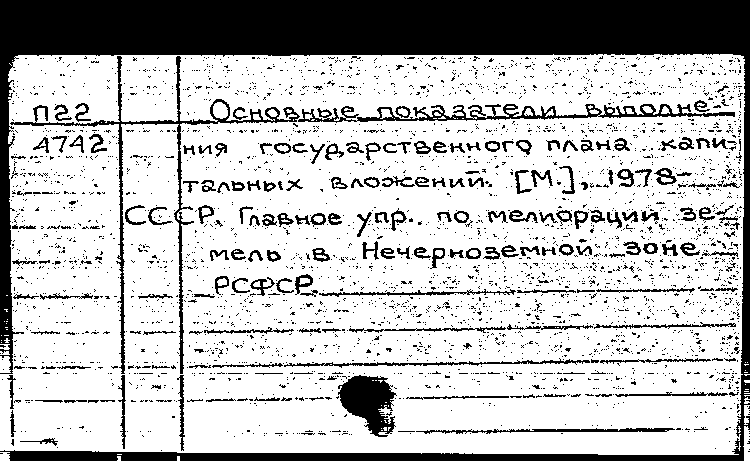 П22 Основные показатели выполне-
4742 ния государственного плана капи-
тальных вложений. [М.], 1978-
СССР. Главное упр. по мелиорации зе-
мель в Нечерноземной зоне
РСФСР